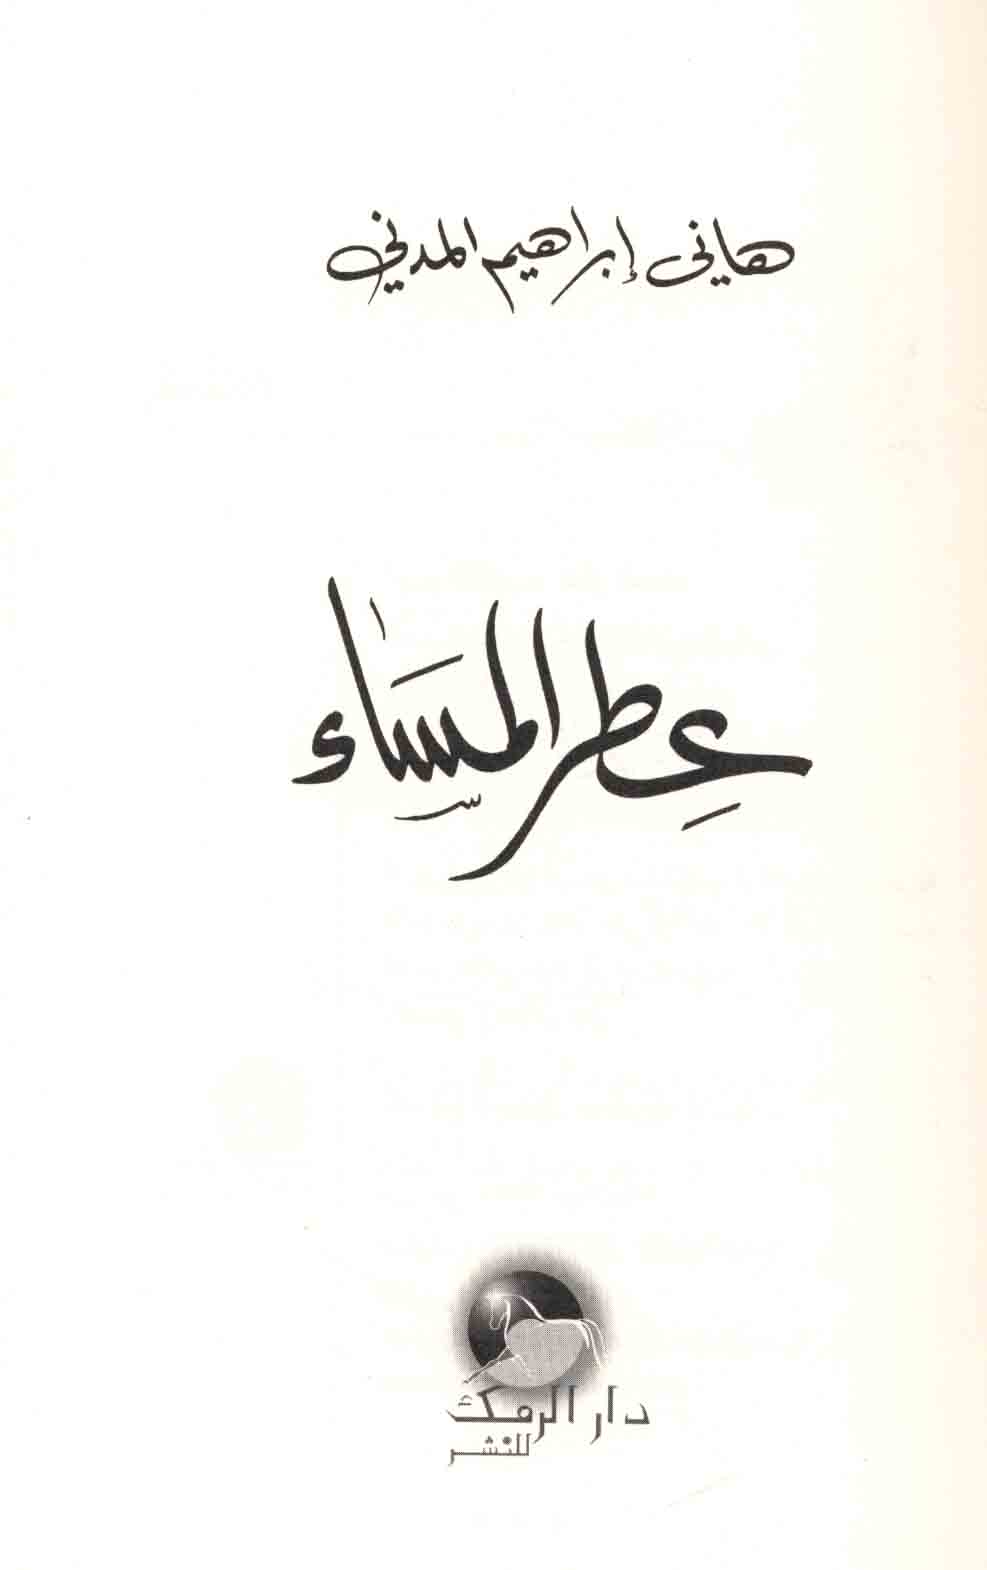 هاني إبراهيم المدني
عطر المساء
دار الرمك
للنشر